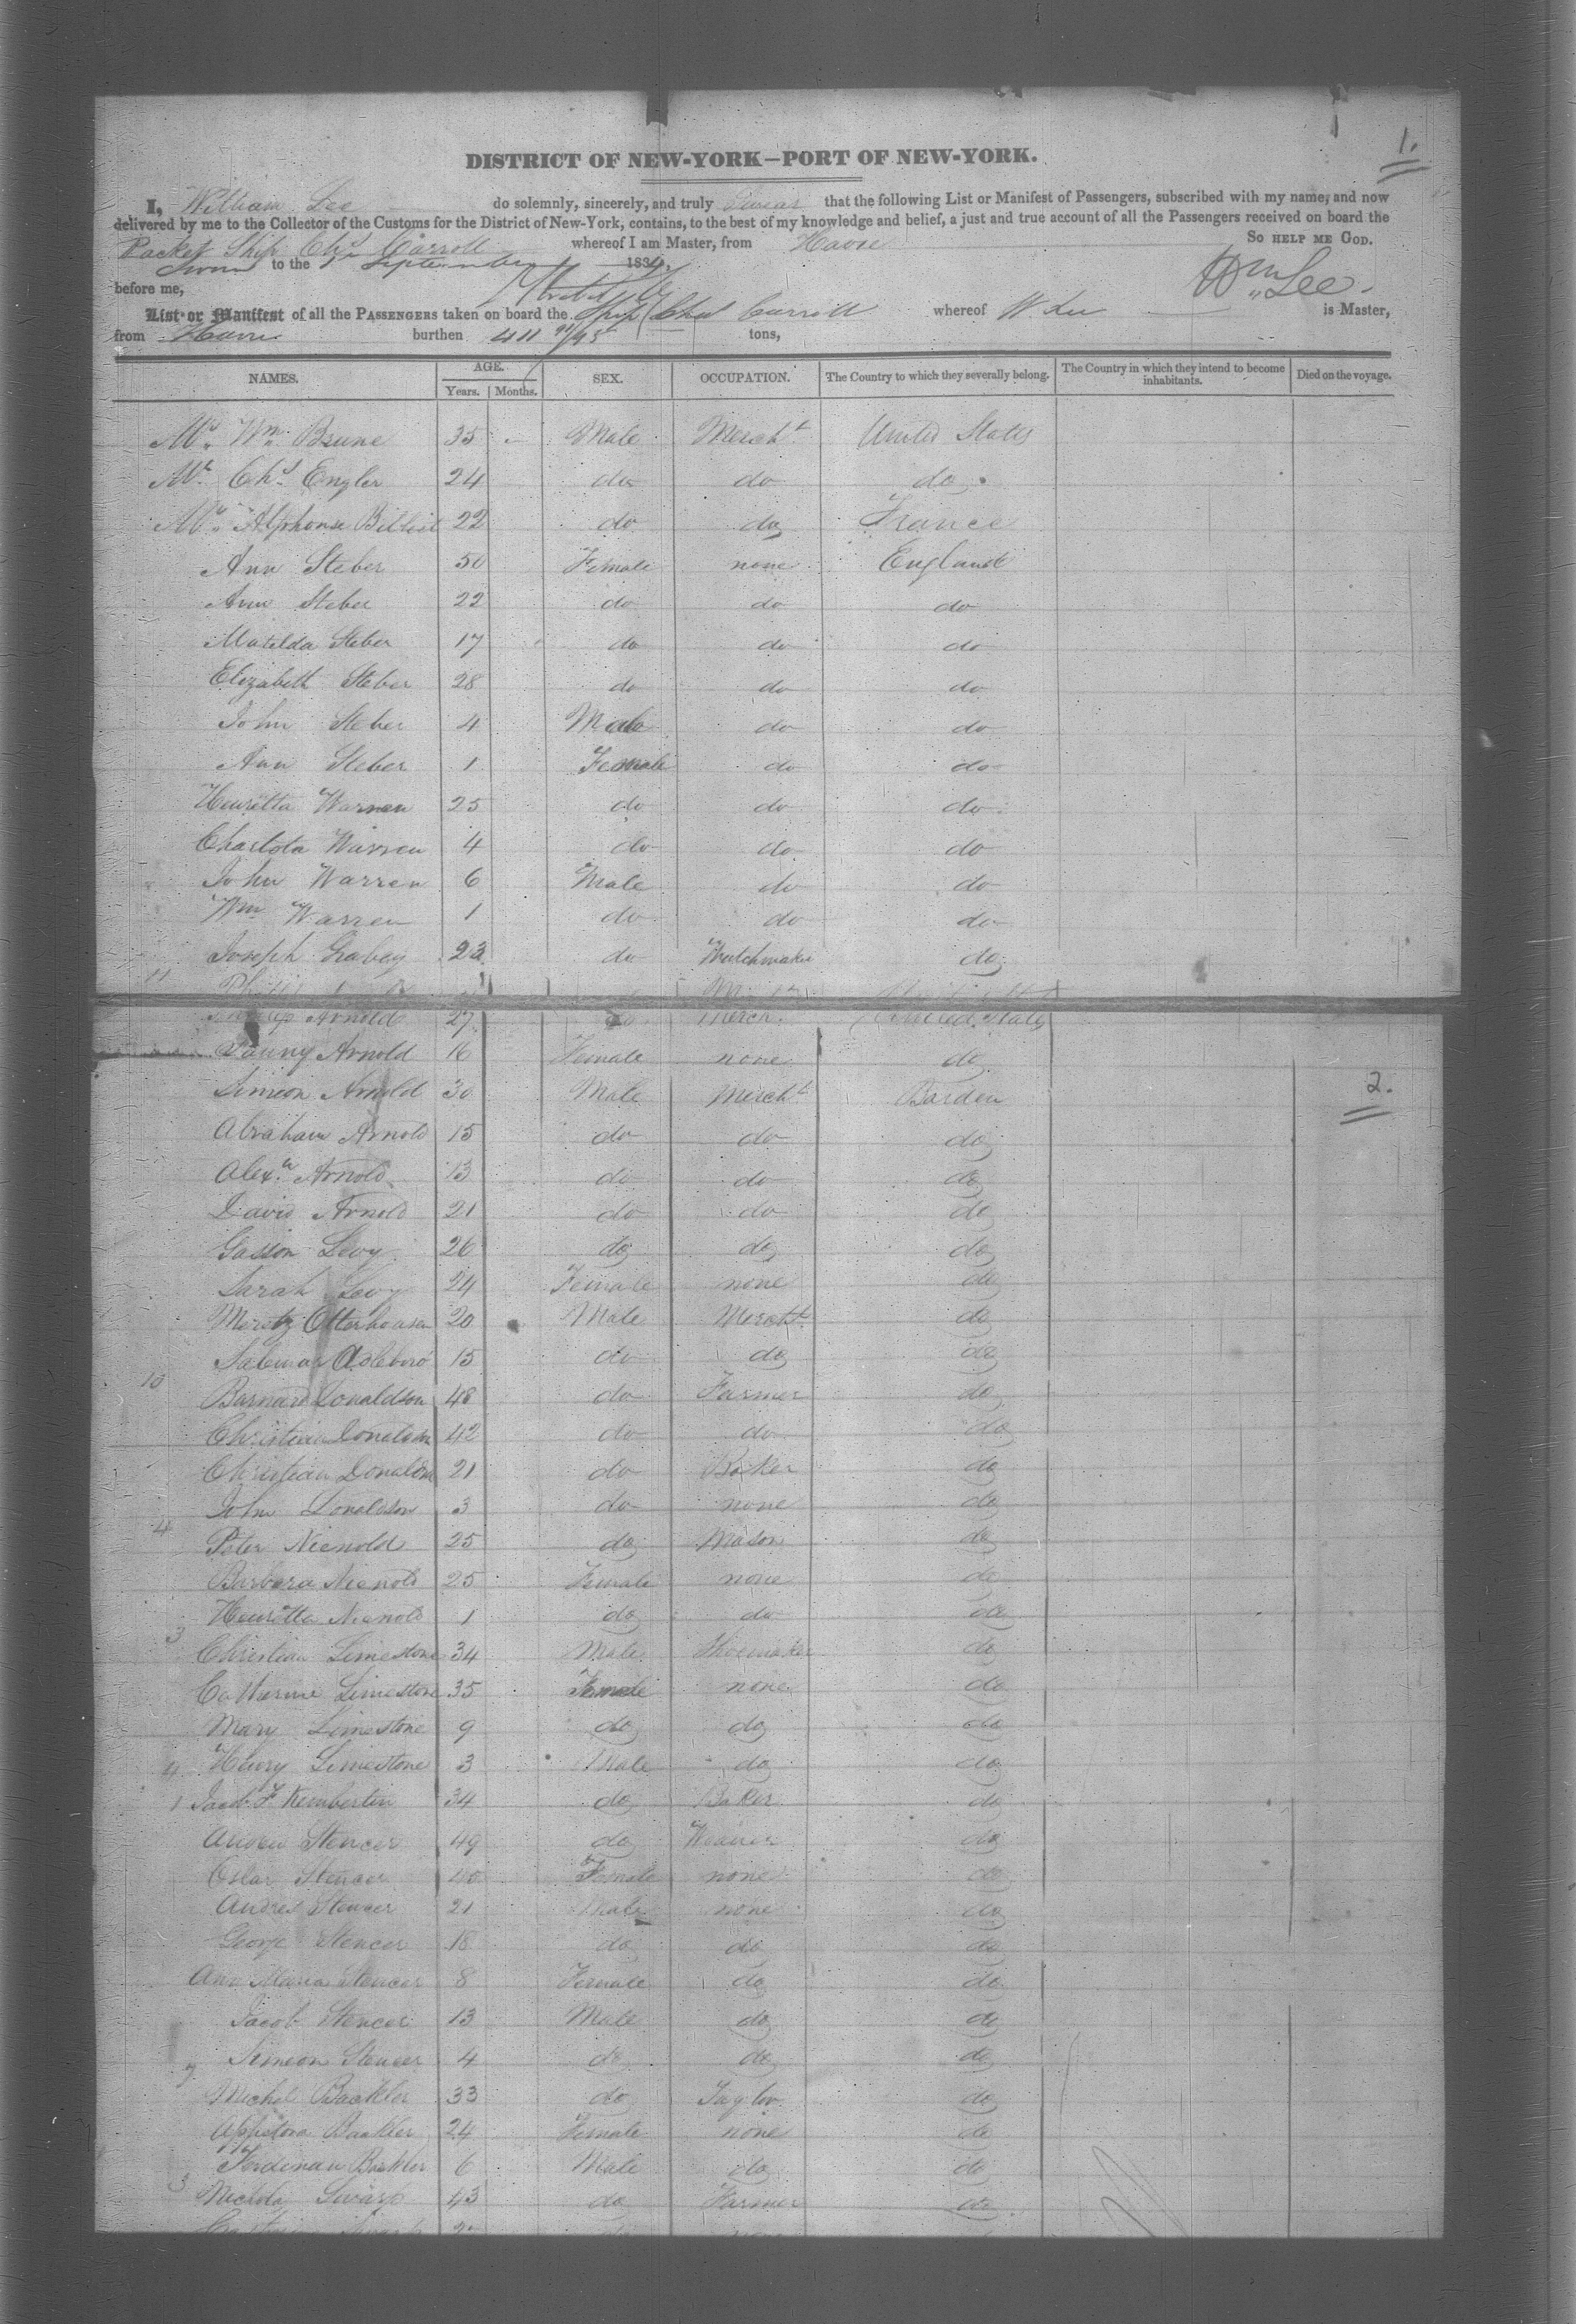 1.
DISTRICT OF NEW-YORK—PORT OF NEW-YORK.
I, William Lee do solemnly, sincerely, and truly Swear that the following List or Manifest of Passengers, subscribed with my name, and now
delivered by me to the Collector of the Customs for the District of New-York, contains, to the best of my knowledge and belief, a just and true account of all the Passengers received on board the
Packet Ship Chs Carroll whereof I am Master, from Havre SO HELP ME GOD.
Sworn to the 1 September 1834.
before me, Wm Lee
List or Manifest of all the PASSENGERS taken on board the Ship Chas Carroll whereof W Lee is Master,
from Havre burthen 411 /95 tons,
NAMES. AGE. Years. Months. SEX. OCCUPATION. The Country to which they severally belong. The Country in which they intend to become inhabitants. Died on the voyage.
Mr Wm Brune 35 Male Mercht United States
Mr Chs Engler 24 do do do
Mr Alphonse 22 do do France
Ann Steber 50 Female none England
Ann Steber 22 do do do
Matilda Steber 17 do do do
Elizabeth Steber 28 do do do
John Steber 4 Male do do
Ann Steber 1 Female do do
Henritta Warren 25 do do do
Charlota Warren 4 do do do
John Warren 6 Male do do
Wm Warren 1 do do do
Joseph Grabey 23 do Watchmaker do
11
Arnold 27 do Merch. United States
Fanny Arnold 16 Female none do
2.
Simeon Arnold 30 Male Mercht Barden
Abraham Arnold 15 do do do
Alexr Arnold 13 do do do
David Arnold 21 do do do
Gasson Levy 26 do do do
Sarah Levy 24 Female none do
Moretz Otterhousen 20 Male Mercht do
15 do do do
10 Barnard Donaldson 48 do Farmer do
Christian Donaldson 42 do do do
Christian Donaldson 21 do Baker do
John Donaldson 3 do none do
4
Peter Nienold 25 do Mason do
Barbara Nienold 25 Female none do
Henritta Nienold 1 do do do
3
Christian Limestone 34 Male Shoemaker do
Catharine Limestone 35 Female none do
Mary Limestone 9 do do do
4 Henry Limestone 3 Male do do
1 Jacob F Kemberlin 34 do Baker do
Andrew Stencer 49 do Weaver do
Stencer 40 Female none do
Andres Stencer 21 Male none do
George Stencer 18 do do do
Ann Maria Stencer 8 Female do do
Jacob Stencer 13 Male do do
7 Simeon Stencer 4 do do do
Michel Backler 33 do Taylor do
Backler 24 Female none do
Ferdenan Backler 6 Male do do
3
Nichola Swarp 43 do Farmer do